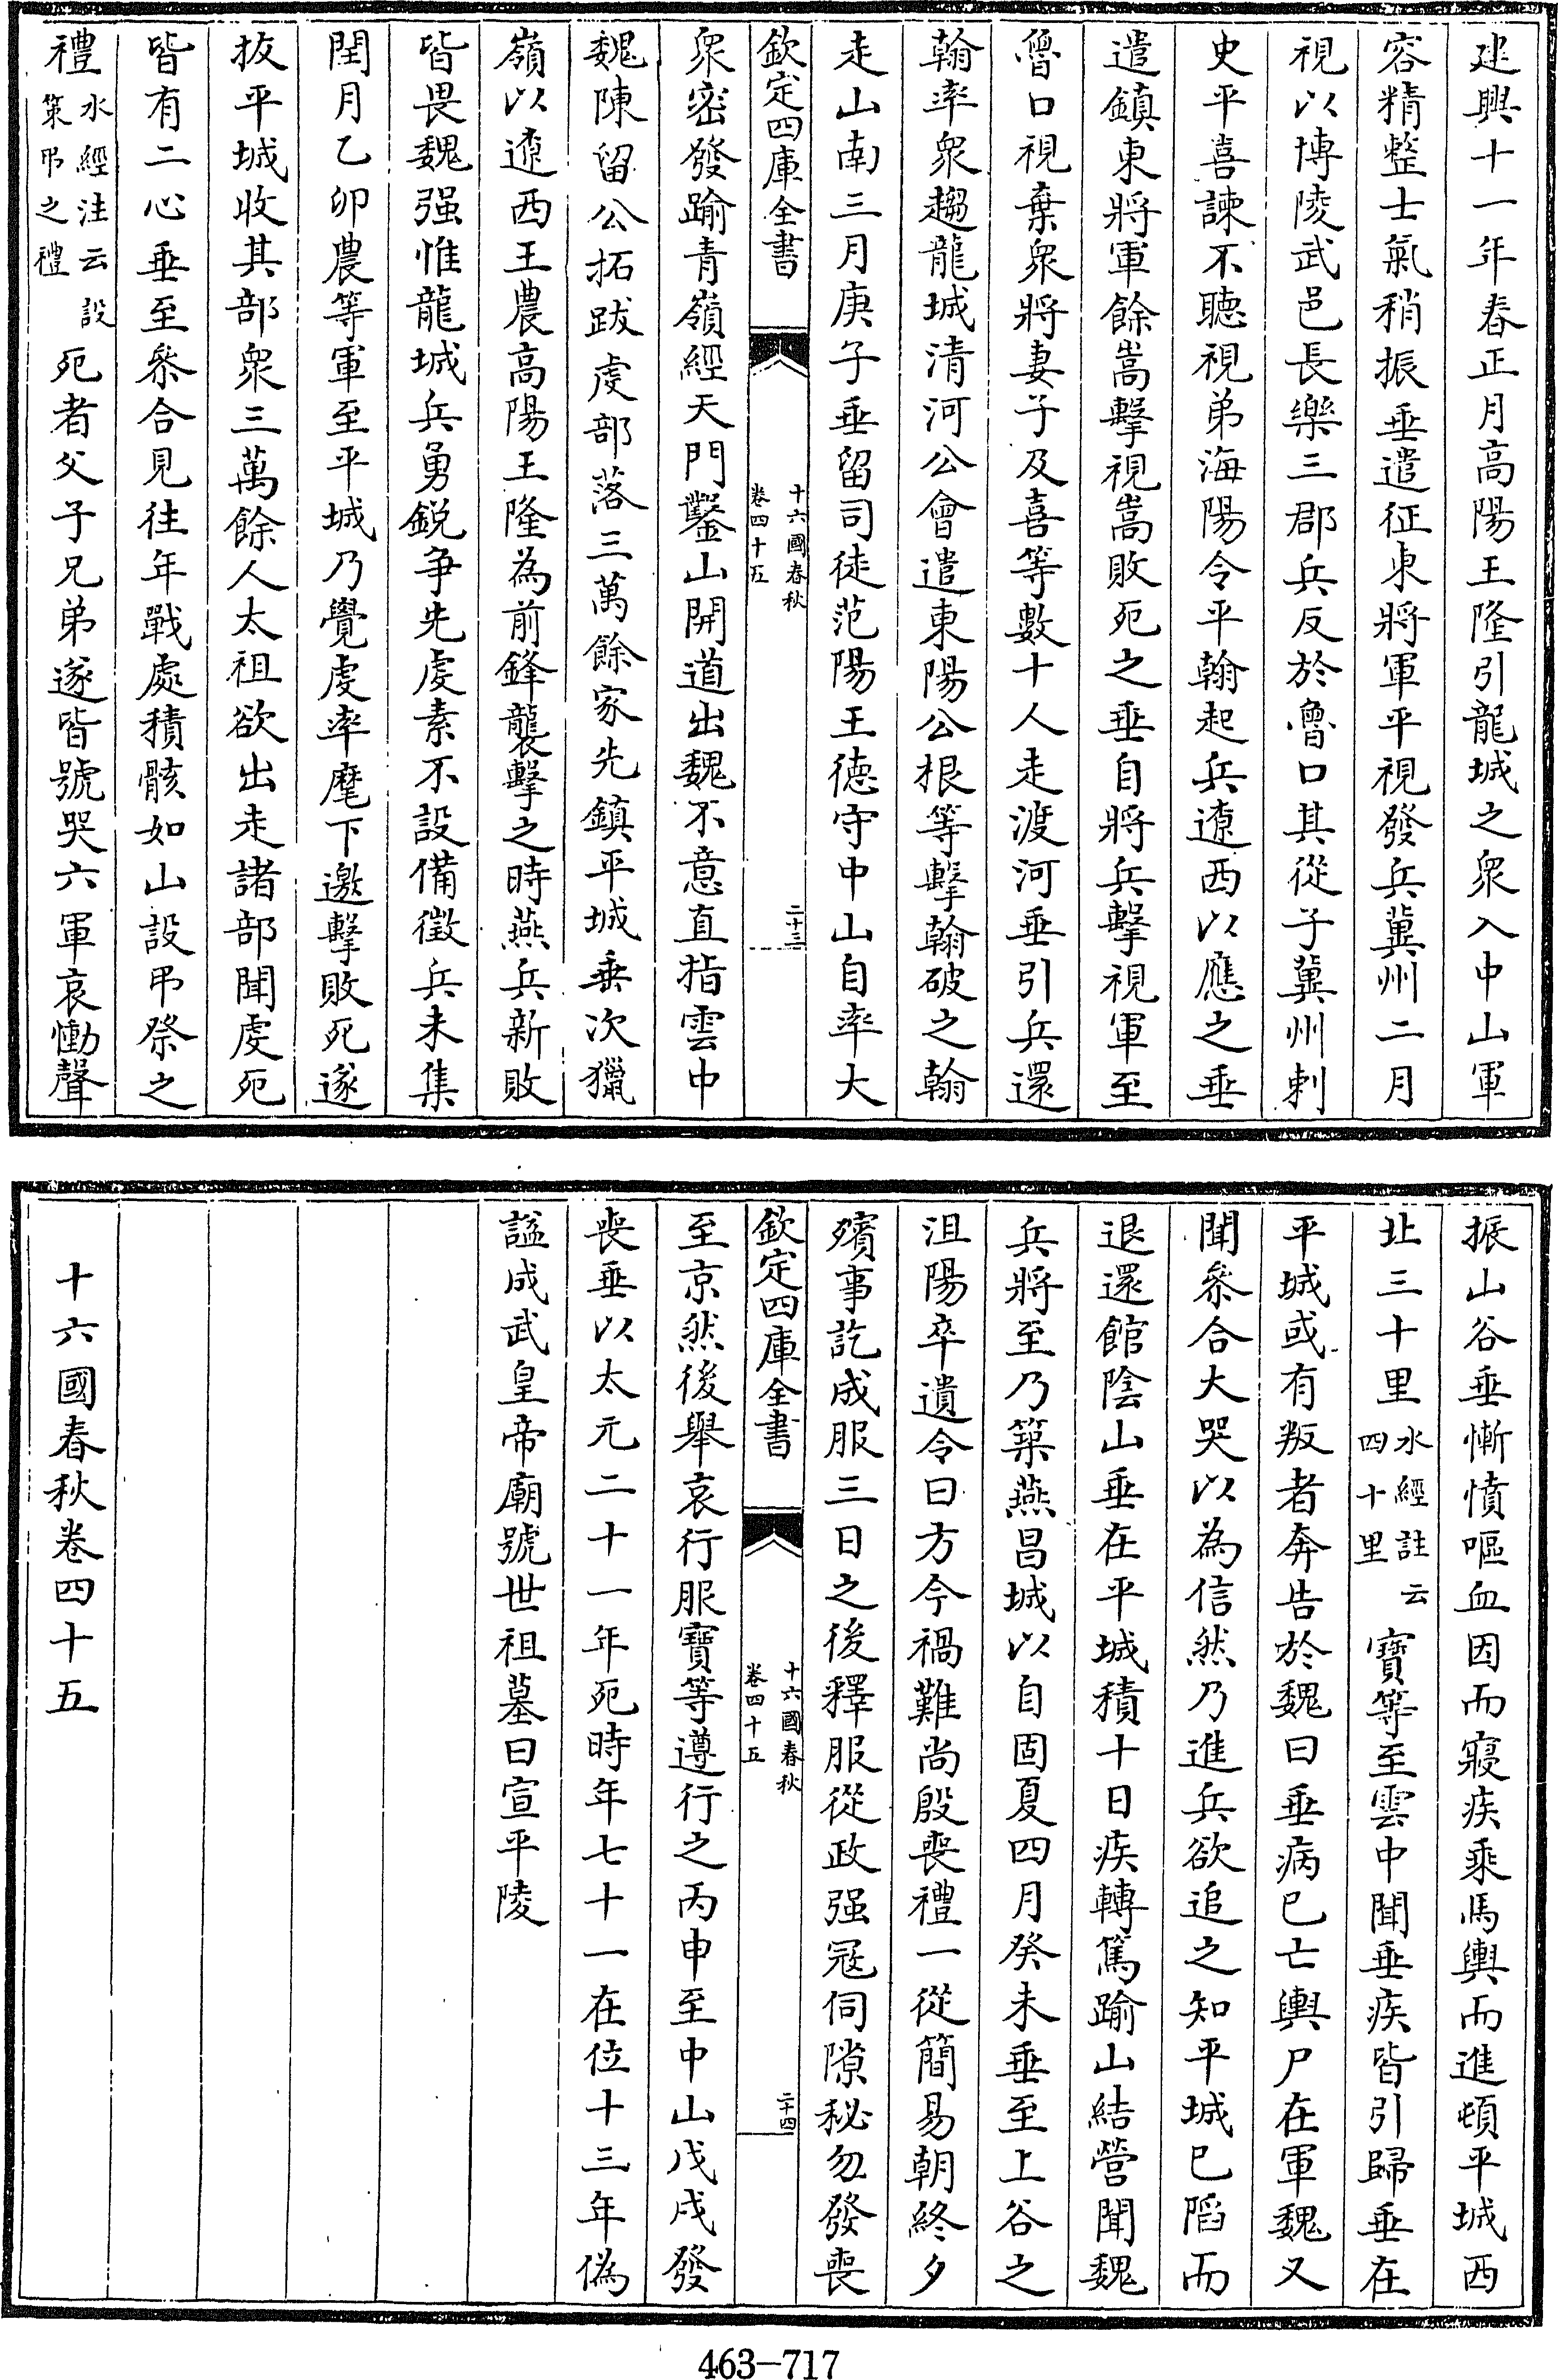 建興十一年春正月高陽王隆引龍城之衆入中山軍
容精整士氣稍振垂遣征東將軍平視發兵冀州二月
視以博陵武邑長樂三郡兵反於魯口其從子冀州刺
史平喜諫不聽視弟海陽令平翰起兵遼西以應之垂
遣鎮東將軍餘嵩擊視嵩敗死之垂自將兵擊視軍至
魯口視棄衆將妻子及喜等數十人走渡河垂引兵還
翰率衆趨龍城清河公會遣東陽公根等擊翰破之翰
走山南三月庚子垂留司徒范陽王德守中山自率大
欽定四庫全書
十六國春秋
卷四十五
二十三
衆密發踰青嶺經天門鑿山開道出魏不意直指雲中
魏陳留公拓跋虔部落三萬餘家先鎮平城垂次獵
嶺以遼西王農高陽王隆為前鋒襲擊之時燕兵新敗
皆畏魏强惟龍城兵勇銳争先虔素不設備徵兵未集
閏月乙卯農等軍至平城乃覺虔率麾下邀擊敗死遂
拔平城收其部衆三萬餘人太祖欲出走諸部聞虔死
皆有二心垂至叅合見往年戰處積骸如山設弔祭之
禮
水經注云設
策弔之禮
死者父子兄弟遂皆號哭六軍哀慟聲
振山谷垂慚憤嘔血因而寢疾乘馬輿而進頓平城西
北三十里
水經註云
四十里
寶等至雲中聞垂疾皆引歸垂在
平城或有叛者奔告於魏曰垂病已亡輿尸在軍魏又
聞叅合大哭以為信然乃進兵欲追之知平城已䧟而
退還館陰山垂在平城積十日疾轉篤踰山結營聞魏
兵將至乃築燕昌城以自固夏四月癸未垂至上谷之
沮陽卒遺令曰方今禍難尚殷喪禮一從簡易朝終夕
殯事訖成服三日之後釋服從政强寇伺隙秘勿發喪
欽定四庫全書
十六國春秋
卷四十五
二十四
至京然後舉哀行服寶等遵行之丙申至中山戊戌發
喪垂以太元二十一年死時年七十一在位十三年偽
諡成武皇帝廟號世祖墓曰宣平陵
十六國春秋卷四十五
463-717